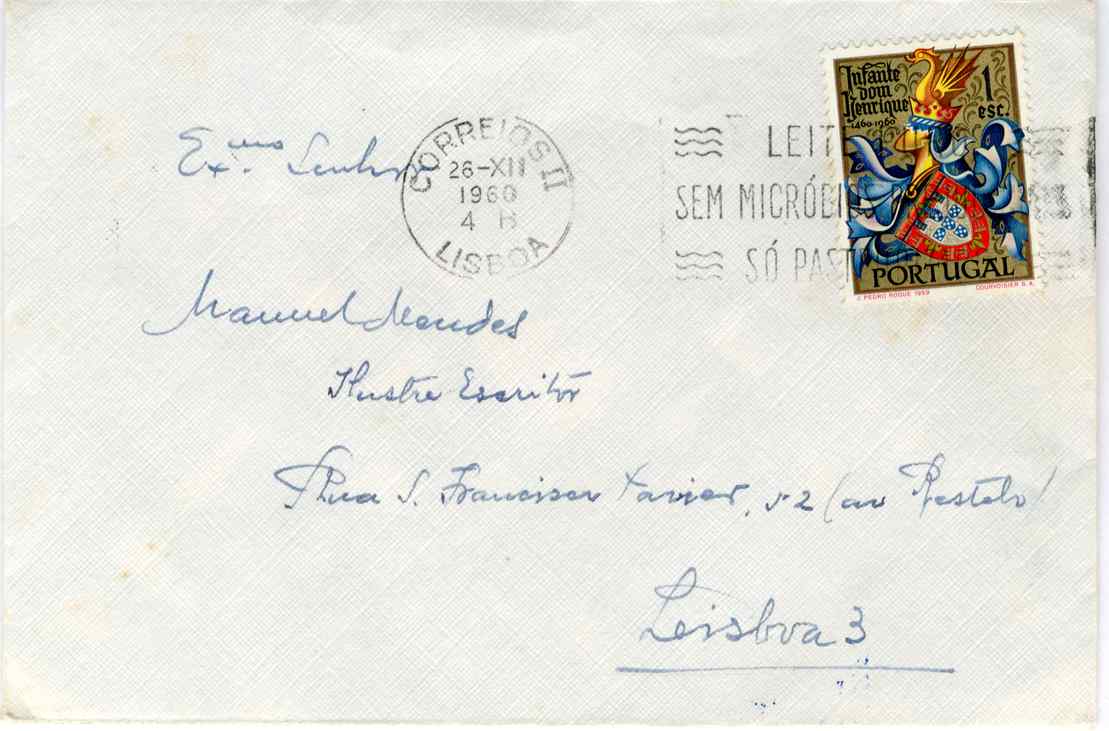 Infante
dom
Henrique
1460-1960
1
esc.
PORTUGAL
J. PEDRO ROQUE 1959 COURVOISIER S.A.
CORREIOS II
26-XII
1960
4 B
LISBOA
LEIT
SEM MICRÓBI
SÓ PAST
Ex.mo Senhor
Manuel Mendes
Ilustre Escritor
Rua S. Francisco Xavier, 52 (ao Restelo)
Leisboa 3